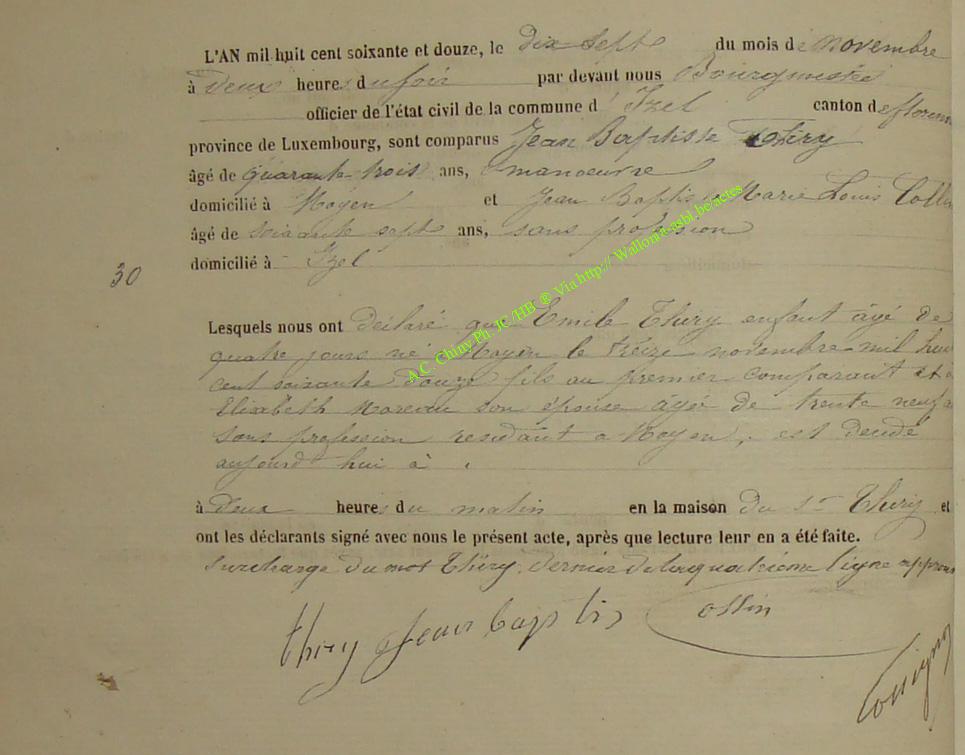 L'AN mil huit cent soixante et douze, le dix sept du mois de novembre
à deux heures du soir par devant nous Bourgmestre
officier de l'état civil de la commune d' Izel canton de floren
province de Luxembourg, sont comparus Jean Baptiste Thiry
âgé de quarante-trois ans, manoeuvre
domicilié à Moyen et Jean Baptiste Marie Louis
âgé de soixante sept ans, sans profession
domicilié à Izel
30
Lesquels nous ont déclaré que Emile Thiry enfant âgé de
quatre jours né Moyen le treize novembre mil huit
cent soixante douze fils au premier comparant et
Elisabeth Moreau son épouse âgée de trente neuf
sans profession residant a Moyen, est décédé
aujourd'hui à .
à deux heures du matin en la maison du sr Thiry et
ont les déclarants signé avec nous le présent acte, après que lecture leur en a été faite.
Surcharge du mot Thiry dernier de la quatrième ligne approu
thiry jean baptis ossin
A.C. Chiny Ph JC /HB ® Via http:// Wallonia-asbl.be/actes